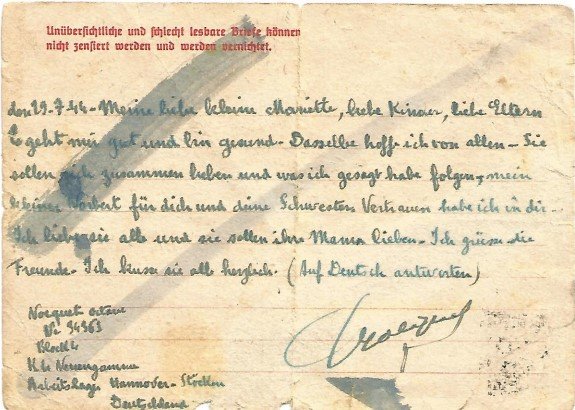 Unübersichtliche und schlecht lesbare Briefe können
nicht zensiert werden und werden vernichtet.
den 29.7.44 - Meine liebe kleine Mariette, liebe Kinder, liebe Eltern
Es geht mir gut und bin gesund - Dasselbe hoffe ich von allen - Sie
sollen sich zusammen lieben und was ich gesagt habe folgen, mein
kleiner für dich und deine Schwester Vertrauen habe ich in dir -
Ich liebe sie alle und sie sollen ihre Mama lieben - Ich grüsse die
Freunde - Ich küsse sie alle herzlich. (Auf Deutsch antworten)
Nocquet
Nr 34363
Block 4
K.L. Neuengamme
Arbeitslager Hannover - Stöcken
Deutschland